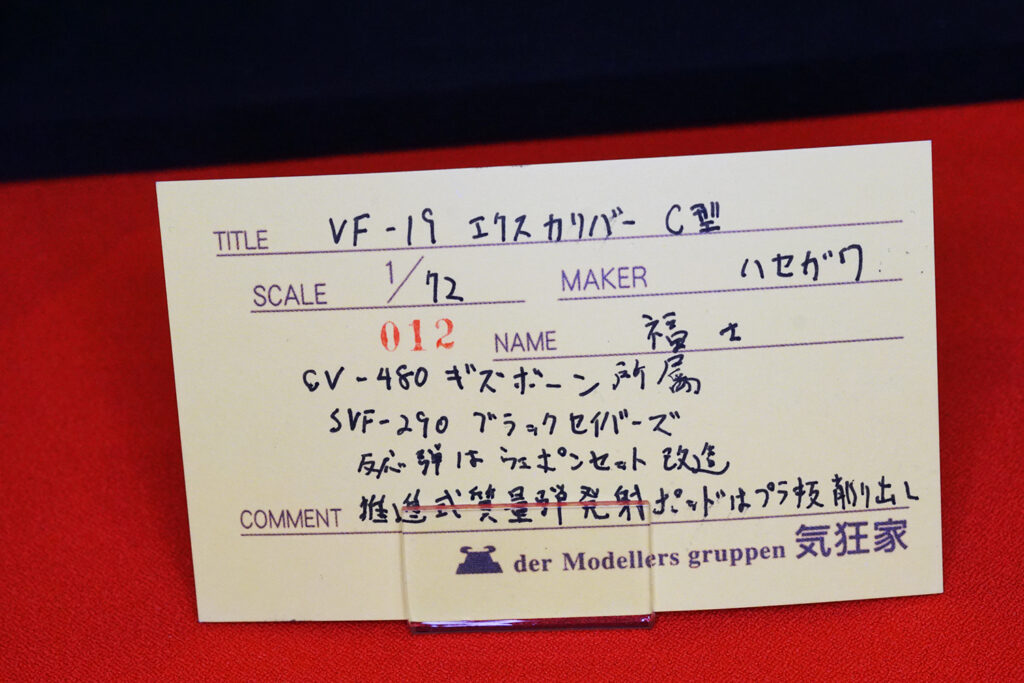 TITLE VF-19 エクスカリバー C型
SCALE 1/72 MAKER ハセガワ
012 NAME 福士
CV-480 ギズボーン所属
SVF-290 ブラックセイバーズ
反応弾はウェポンセット改造
COMMENT 推進式質量弾発射ポッドはプラ板削り出し
der Modellers gruppen 気狂家